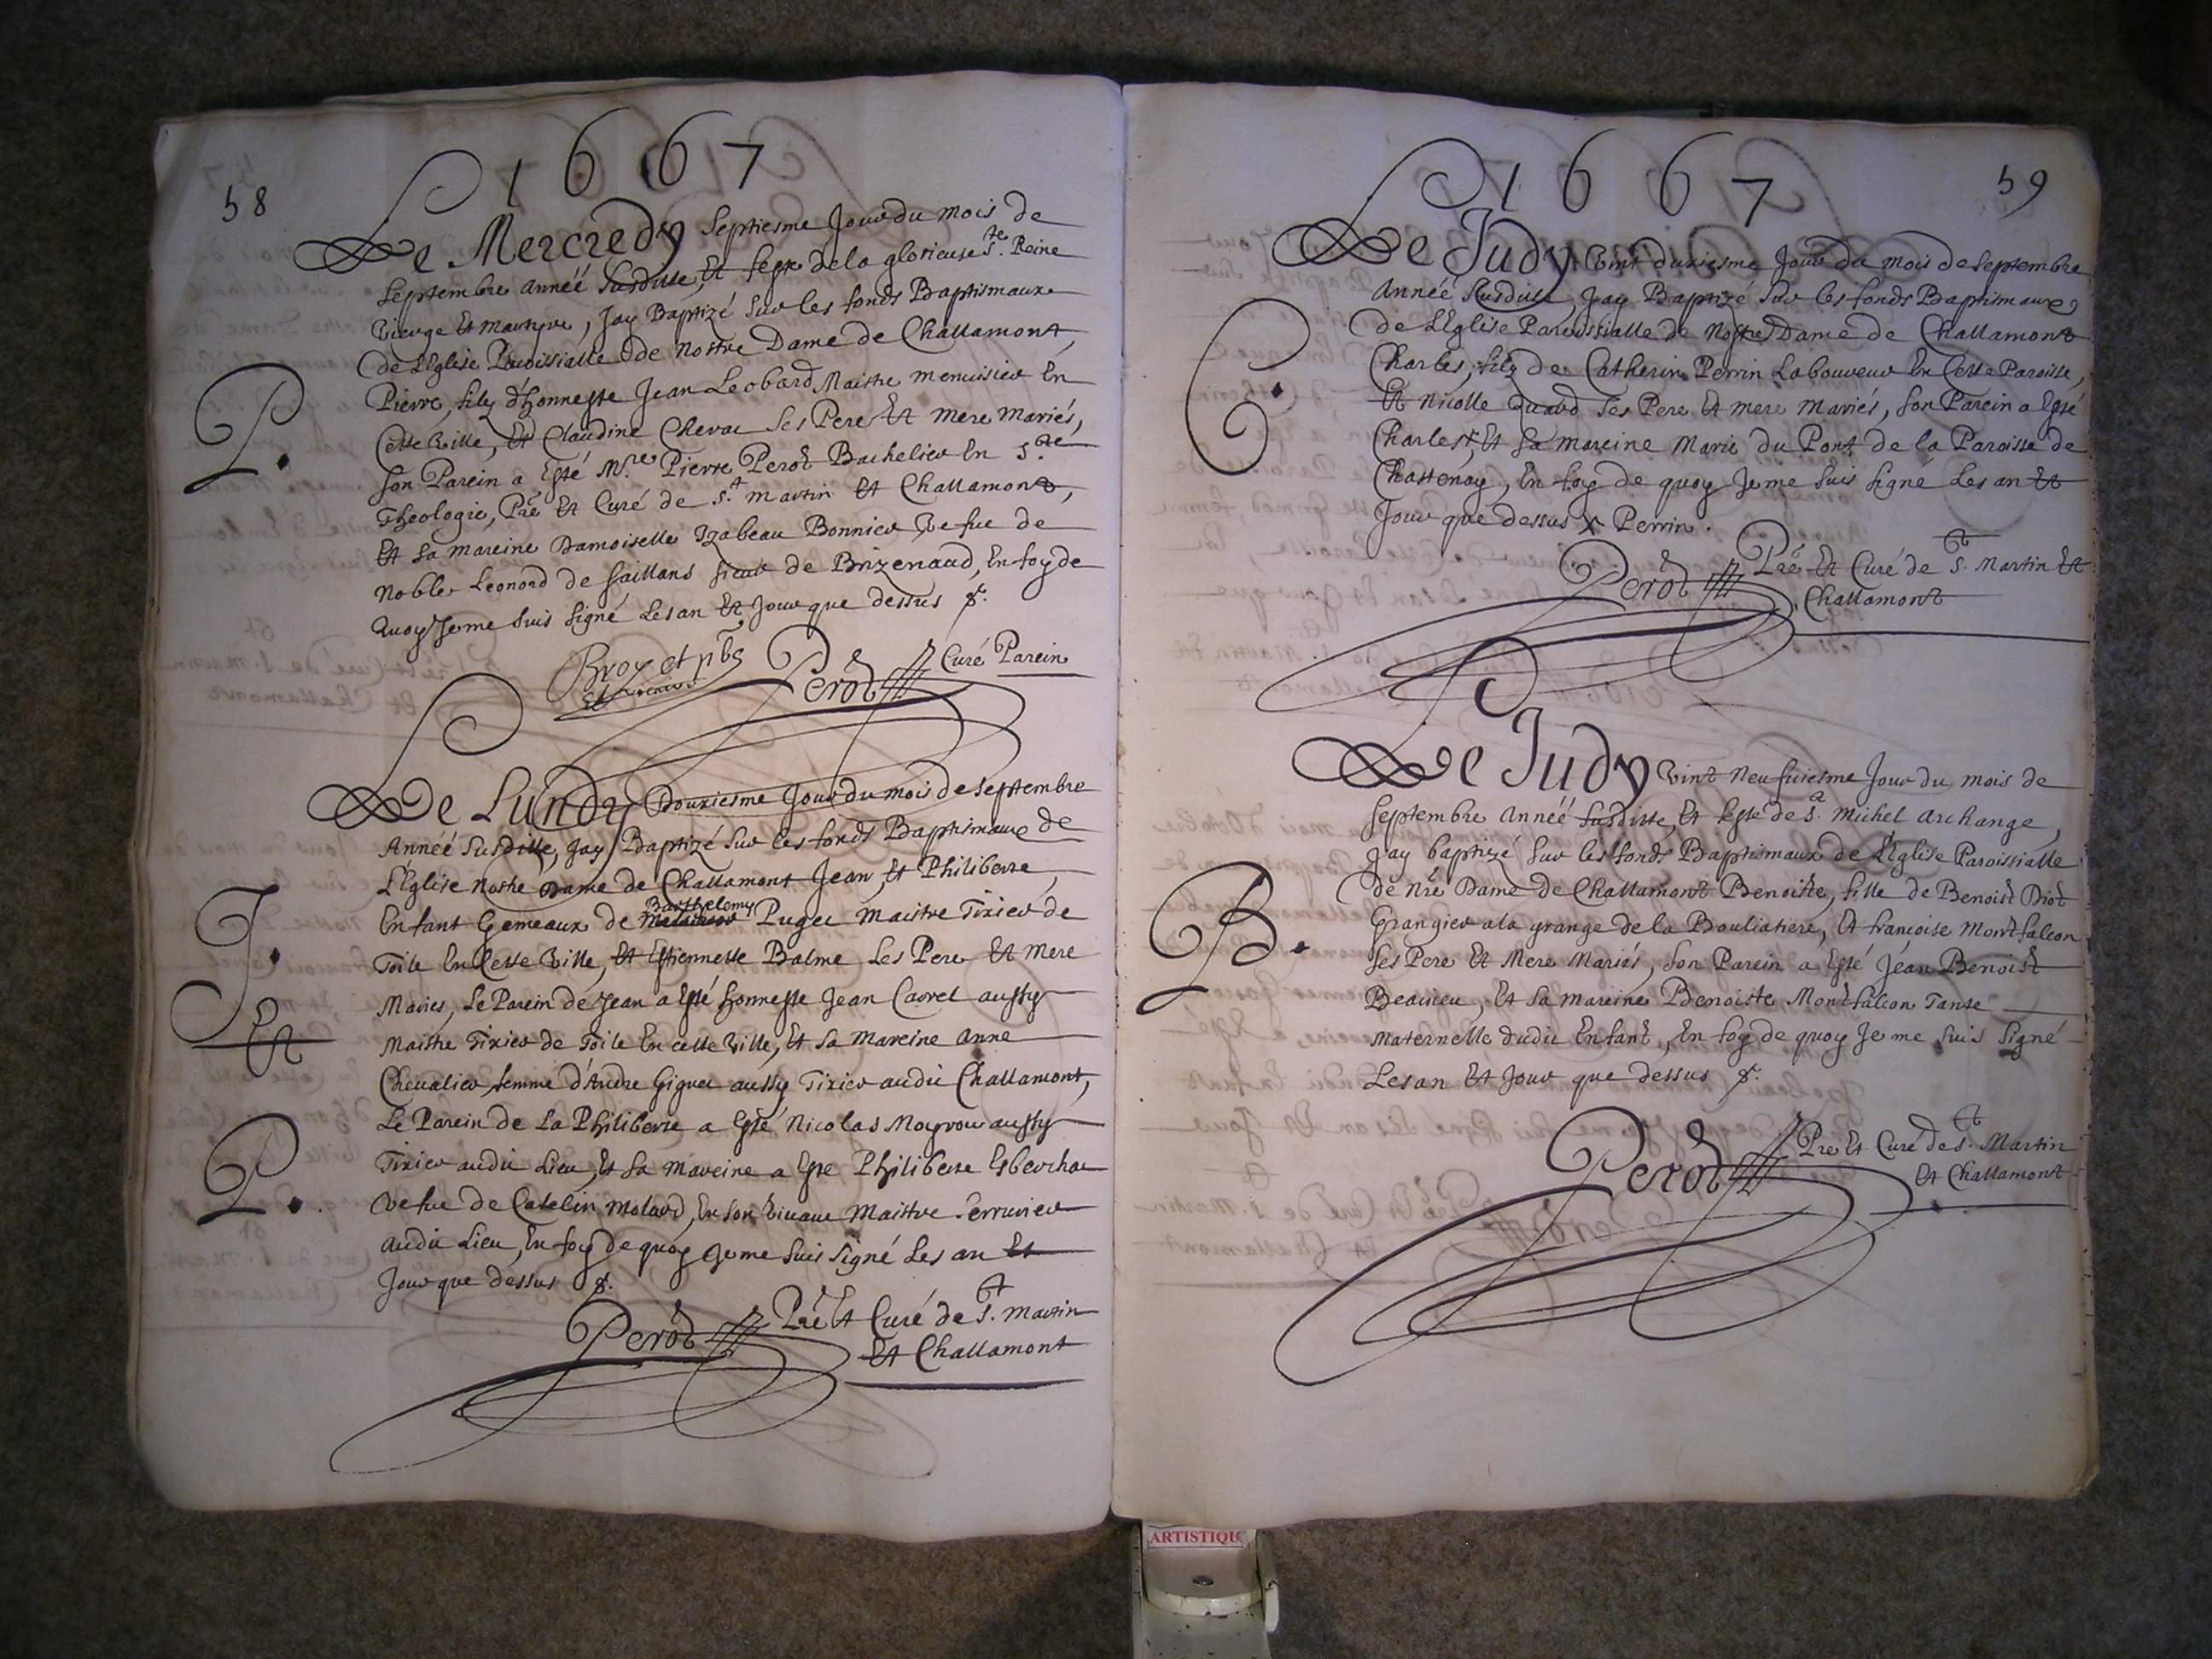 58
1667
Le Mercredy Septiesme Jour du mois de
Septembre année susditte, Et feste de la glorieuse Ste. Reine
Vierge Et martyre, Jay Baptizé sur les fonds Baptismaux
de L'Eglise Paroissialle de Nostre Dame de Challamont,
P.
Pierre, filz d'honneste Jean Leobard Maistre menuisier En
Cette Ville, Et Claudine Chevac ses Pere Et mere Mariés,
son Parein a Esté Mre. Pierre Perot Bachelier En Ste.
Theologie, Pre Et Curé de St. martin Et Challamont,
Et sa mareine Damoiselle Izabeau Bonnier Vefue de
Noble Leonord de saillans sieur de Brizenaud, En foy de
Quoy Je me suis signé Les an Et Jour que dessus
Perot Curé Parein
Le Lundy Douziesme Jour du mois de Septembre
Année susditte, Jay Baptizé sur les fonds Baptismaux de
L'Eglise Nostre Dame de Challamont Jean, Et Philiberte,
Barthelemy
Enfant Gemeaux de Puget maitre Tixier de
J.
Toile En Cette Ville, Et Estiennette Balme Les Pere Et Mere
Mariés, Le Parein de Jean a Esté honneste Jean Cavret aussy
Et
Maistre Tixier de Toile En cette Ville, Et sa Mareine Anne
Chevalier femme d'Andre Giguet aussy Tixier audit Challamont,
P.
Le Parein de La Philiberte a Esté Nicolas Moyroux aussy
Tixier audit Lieu, Et sa Mareine a Esté Philiberte
Vefue de Catelin Molard, En son Vivant Maistre serrurier
audit Lieu, En foy de quoy Je me suis signé Les an Et
Jour que dessus
Perot Pre Et Curé de St. Martin
Et Challamont
59
1667
Le Judy Vint duxiesme Jour du mois de Septembre
Année susditte, Jay Baptizé sur les fonds Baptismaux
de L'Eglise Paroissialle de Nostre Dame de Challamont
C.
Charles, filz de Catherin Perrin Laboureur En Cette Paroisse,
Et Nicolle Quard ses Pere Et mere Mariés, son Parein a Esté
Charles x Et sa mareine Marie du Pont de la Paroisse de
Chastenay, En foy de quoy Je me suis signé Les an Et
Jour que dessus x Perrin.
Perot Pre Et Curé de St. Martin Et
Challamont
Le Judy Vint Neufuiesme Jour du mois de
Septembre Année susditte, Et feste de St. Michel Archange,
Jay baptizé sur les fonds Baptismaux de L'Eglise Paroissialle
B.
de Nre Dame de Challamont Benoiste, fille de Benoist Biot
Grangier a la grange de la Bouliatiere, Et francoise Montfalcon
ses Pere Et Mere Mariés, son Parein a Esté Jean Benoist
Beauieu, Et sa mareine Benoiste Montfalcon Tante
Maternelle dudit Enfant, En foy de quoy Je me suis signé
Les an Et Jour que dessus
Perot Pre Et Curé de St. Martin
Et Challamont
ARTISTIQU